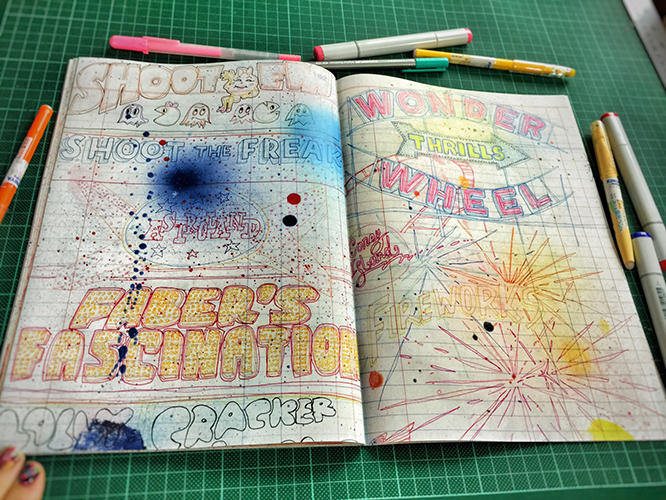 SHOOT EM
SHOOT THE FREAK
ASTROLAND
FABER'S
FASCINATION
CRACKER
WONDER
THRILLS
WHEEL
Coney
Island
FIREWORKS